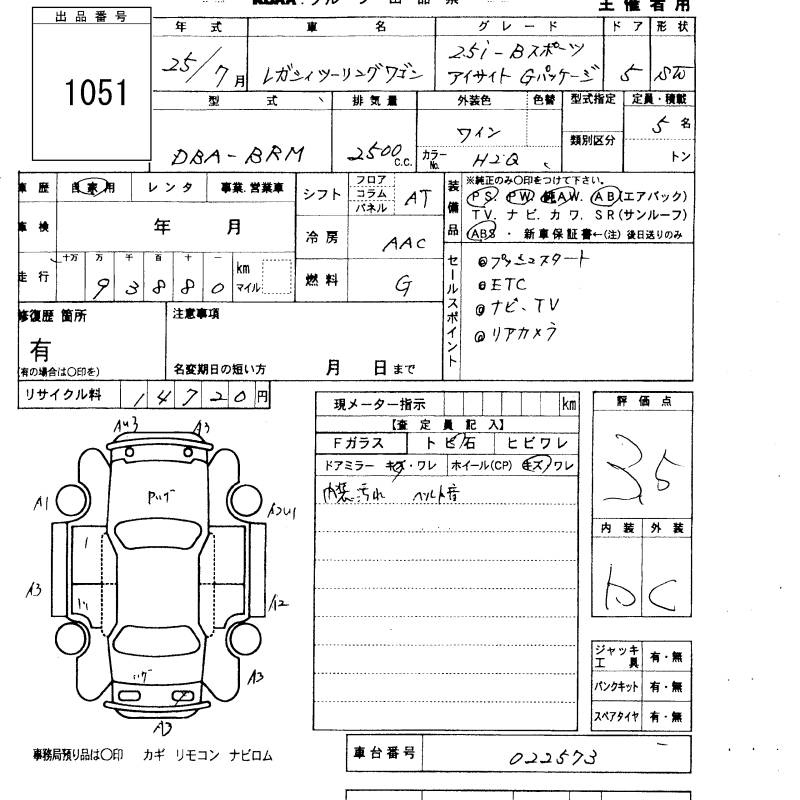 主催者用
出品番号
1051
年式 車名 グレード ドア 形状
25/7月 レガシィツーリングワゴン 2.5i-Bスポーツ アイサイト Gパッケージ 5 SW
型式 排気量 外装色 色替 型式指定 定員・積載
DBA-BRM 2500c.c. ワイン 類別区分 5名
カラーNo. H2Q トン
車歴 自家用 レンタ 事業.営業車 シフト フロア コラム パネル AT
車検 年 月 冷房 AAC
走行 十万 万 千 百 十 一 km マイル 燃料 G
93880
装備品 ※純正のみ○印をつけて下さい。
PS. PW. 純AW. AB(エアバック)
TV. ナビ. カワ. SR(サンルーフ)
ABS ・ 新車保証書←(注) 後日送りのみ
セールスポイント
プッシュスタート
ETC
ナビ、TV
リアカメラ
修復歴 箇所 注意事項
有
(有の場合は○印を) 名変期日の短い方 月 日まで
リサイクル料 14720円
現メーター指示 km
【査定員記入】
Fガラス トビ石 ヒビワレ
ドアミラー キズ・ワレ ホイール(CP) キズ/ワレ
内装汚れ ベルト音
評価点
3.5
内装 外装
D C
A3
A1
A3 A2
A3
A3
ジャッキ工具 有・無
パンクキット 有・無
スペアタイヤ 有・無
事務局預り品は○印 カギ リモコン ナビロム
車台番号 022573